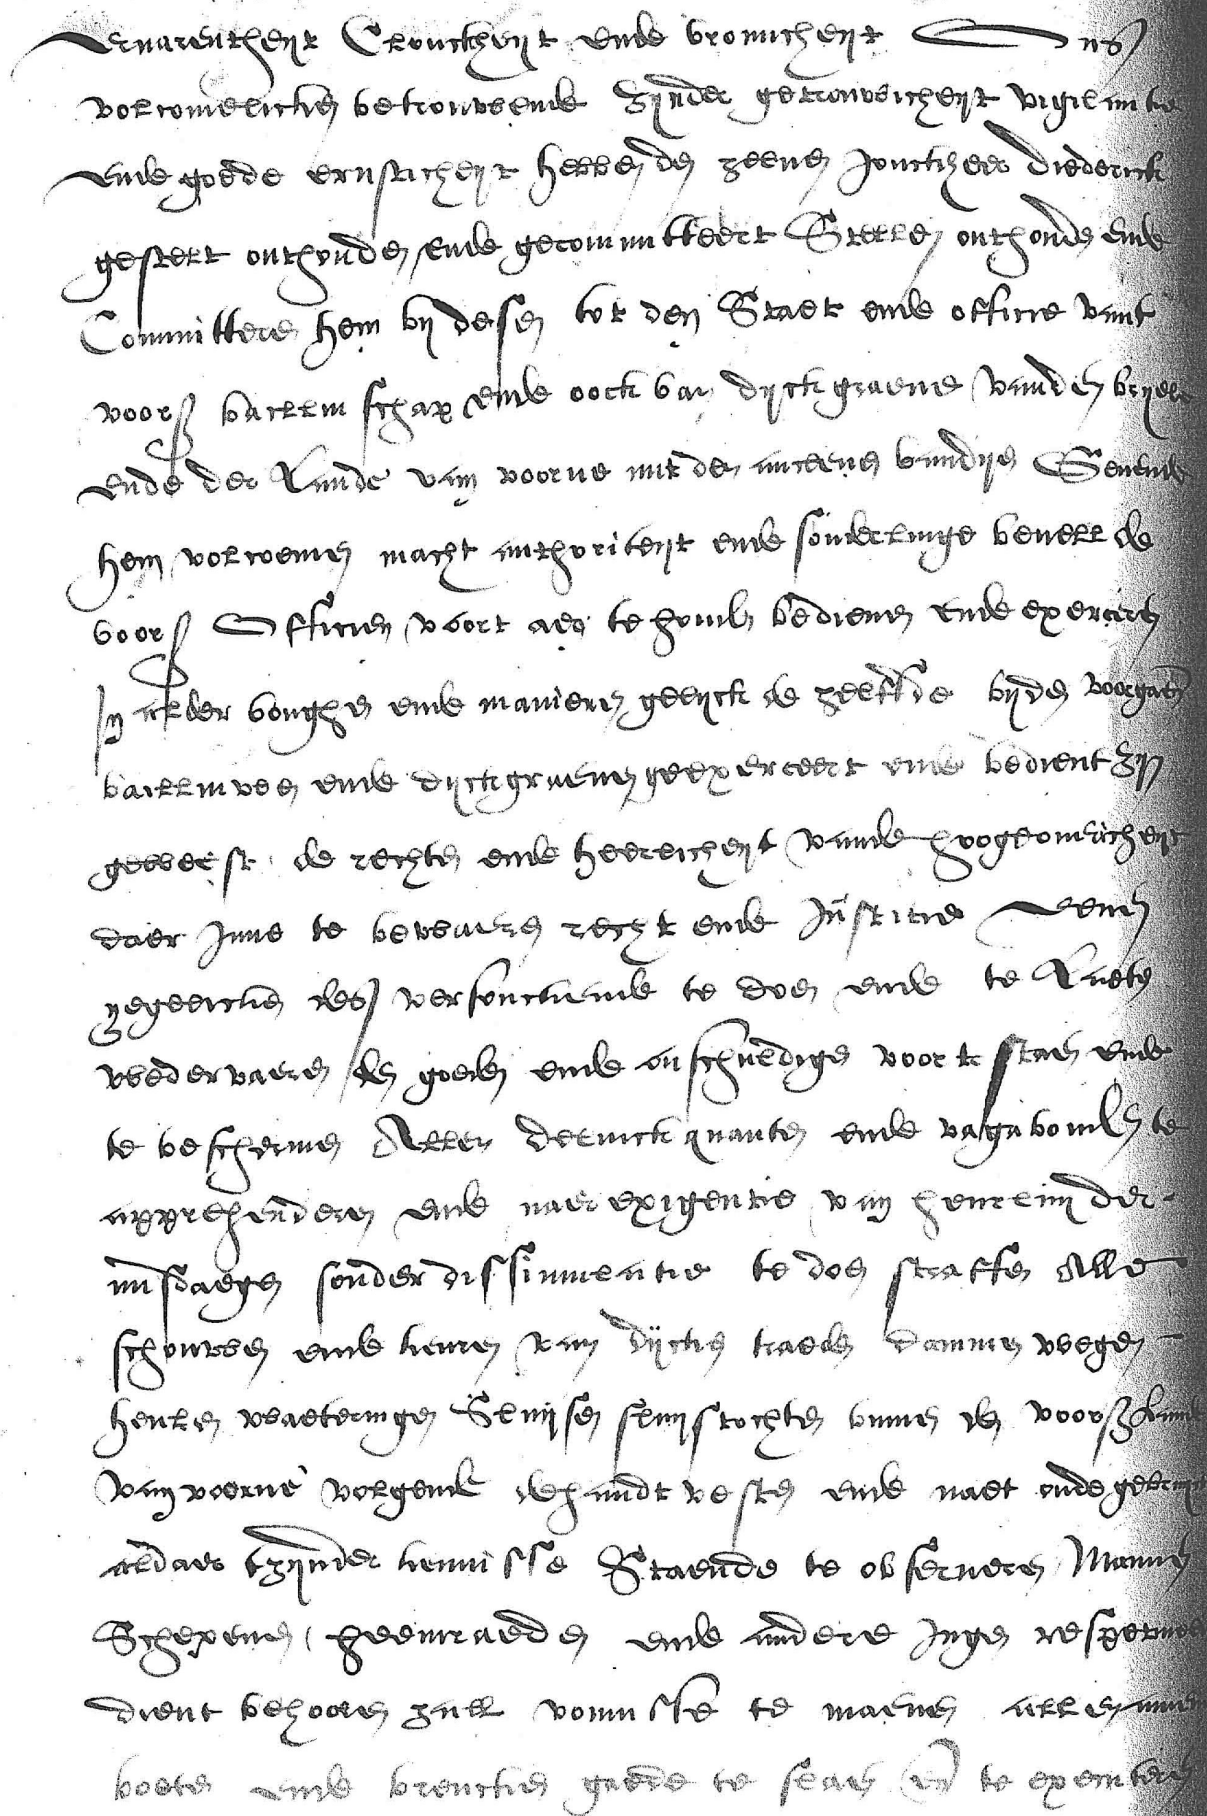 Ervarentheyt Cloucheyt ende vromicheyt Ons
volcomelicken betrouwende zijnder getrouwicheyt vigilantie
Ende goede ernsticheyt hebben den zelven Joncheer Diederick
gestelt onthouden ende gecommitteert Stellen onthouden ende
Committeren hem bij desen tot den Staet ende officie vant
voors bailliuschap ende oock van dijckgraeve vanden briele
Ende der Lande van voorne mit den ancleven vandijen Gevende
hem volcomen macht authoriteyt ende sonderlinge bevele de
voors Officien voort aen te houden bedienen Ende exerceren
In alder vougen ende manieren gelijck de zelffde bijden voorgaen
bailliuwen ende dijckgraven geexerceert ende bedient zijn
geweest de rechten ende heerlicheyt vande hoogeomicheyt
daer Inne te bewaeren recht ende Justitie Eenen
yegelicken des versouckende te doen ende te Laeten
wedervaeren den goeden ende onschuldigen voort staen ende
te beschermen Allen delinckquanten ende vagabonden te
apprehenderen ende naer exigentie van heurluyder
misdaegen sonder dissimulatie te doen straffen Alle
schouwen ende keuren van dijcken kaeden dammen wegen
heulen waeteringen Sluijsen sluijstochten binnen den voors Lande
van voorne volgende de handtvesten ende naet oude gebruyck
aldaer tzijnder kennisse Staende te observeren Mannen
Schepenen heemraeden ende andere Ingen respective
dient behooren zall vonnisse te maenen allen
boeten ende breucken gaede te slaen en te executeren